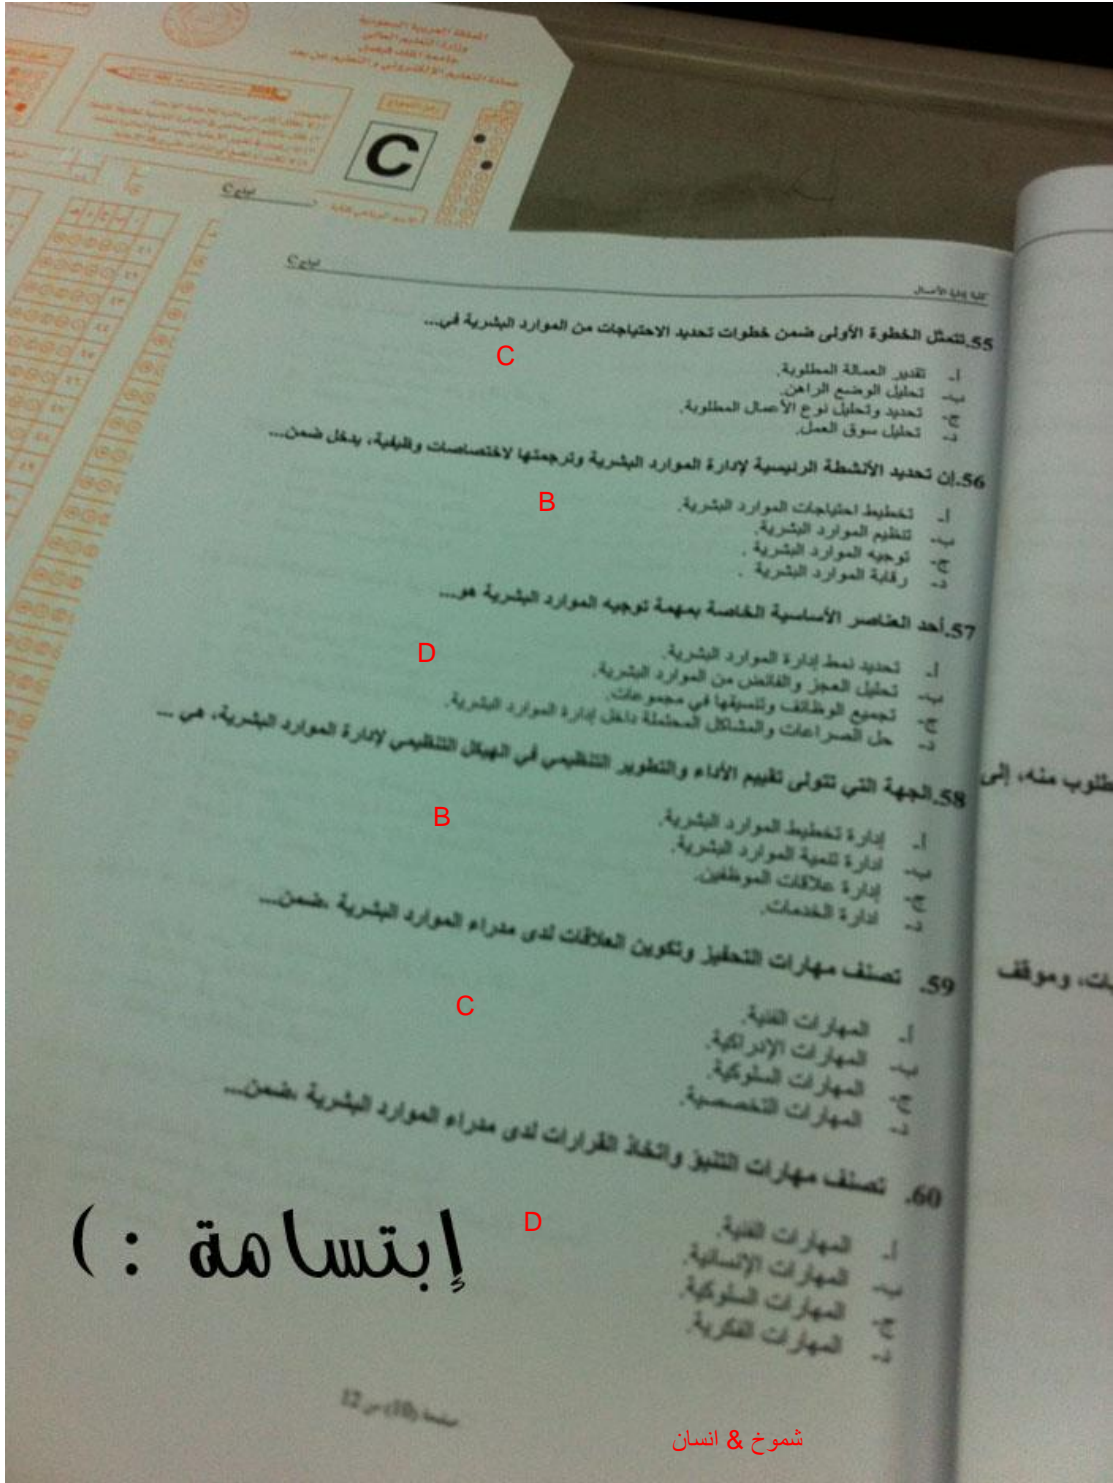 المملكة العربية السعودية
وزارة التعليم العالي
جامعة الملك فيصل
عمادة التعليم الإلكتروني و التعليم عن بعد
رمز النموذج
C
نموذج C
كلية إدارة الأعمال
نموذج C
55.تتمثل الخطوة الأولى ضمن خطوات تحديد الاحتياجات من الموارد البشرية في...
C
أ- تقدير العمالة المطلوبة.
ب- تحليل الوضع الراهن.
ج- تحديد وتحليل نوع الأعمال المطلوبة.
د- تحليل سوق العمل.
56.إن تحديد الأنشطة الرئيسية لإدارة الموارد البشرية وترجمتها لاختصاصات وظيفية، يدخل ضمن...
B
أ- تخطيط احتياجات الموارد البشرية.
ب- تنظيم الموارد البشرية.
ج- توجيه الموارد البشرية .
د- رقابة الموارد البشرية .
57.أحد العناصر الأساسية الخاصة بمهمة توجيه الموارد البشرية هو...
D
أ- تحديد نمط إدارة الموارد البشرية.
ب- تحليل العجز والفائض من الموارد البشرية.
ج- تجميع الوظائف وتنسيقها في مجموعات.
د- حل الصراعات والمشاكل المحتملة داخل إدارة الموارد البشرية.
58.الجهة التي تتولى تقييم الأداء والتطوير التنظيمي في الهيكل التنظيمي لإدارة الموارد البشرية، هي ...
B
أ- إدارة تخطيط الموارد البشرية.
ب- ادارة تنمية الموارد البشرية.
ج- إدارة علاقات الموظفين.
د- ادارة الخدمات.
59. تصنف مهارات التحفيز وتكوين العلاقات لدى مدراء الموارد البشرية ،ضمن...
C
أ- المهارات الفنية.
ب- المهارات الإدراكية.
ج- المهارات السلوكية.
د- المهارات التخصصية.
60. تصنف مهارات التنبؤ واتخاذ القرارات لدى مدراء الموارد البشرية ،ضمن...
D
أ- المهارات الفنية.
ب- المهارات الإنسانية.
ج- المهارات السلوكية.
د- المهارات الفكرية.
إبتسامة : )
صفحة (10) من 12
شموخ & انسان
طلوب منه، إلى
وموقف